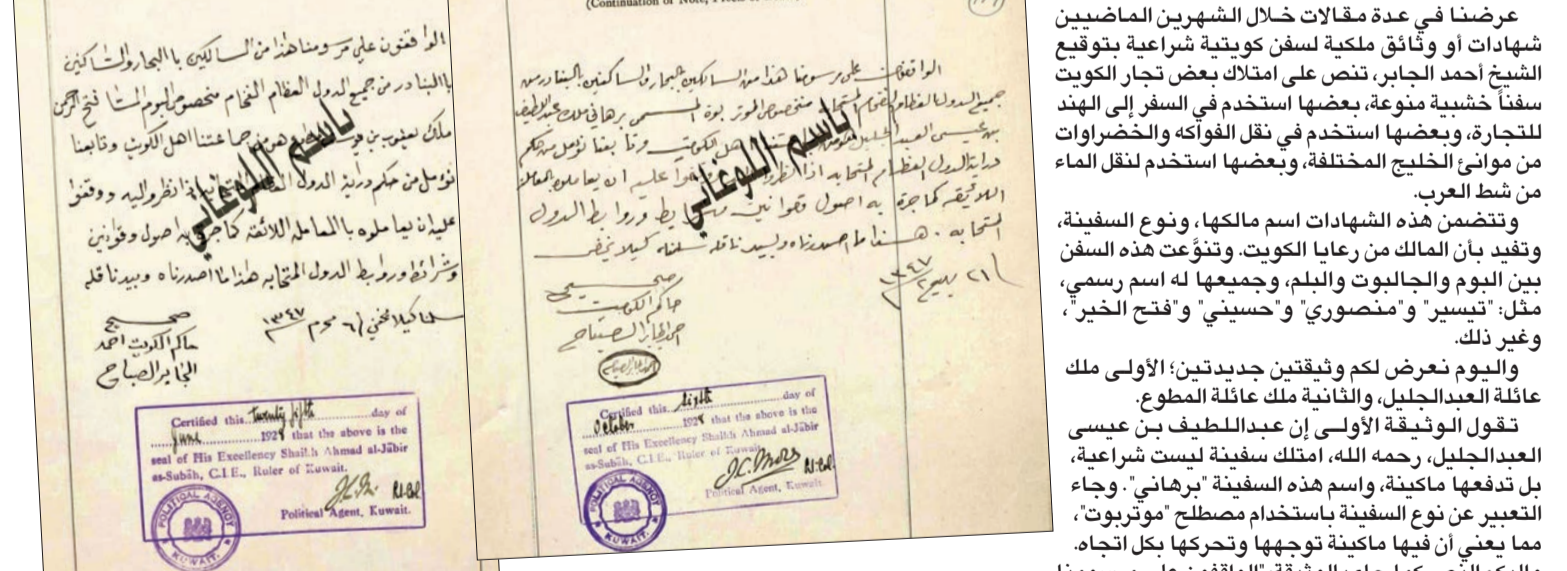 عرضنا في عدة مقالات خلال الشهرين الماضيين
شهادات أو وثائق ملكية لسفن كويتية شراعية بتوقيع
الشيخ أحمد الجابر، تنص على امتلاك بعض تجار الكويت
سفناً خشبية منوعة، بعضها استخدم في السفر إلى الهند
للتجارة، وبعضها استخدم في نقل الفواكه والخضراوات
من موانئ الخليج المختلفة، وبعضها استخدم لنقل الماء
من شط العرب.
وتتضمن هذه الشهادات اسم مالكها، ونوع السفينة،
وتفيد بأن المالك من رعايا الكويت. وتنوَّعت هذه السفن
بين البوم والجالبوت والبلم، وجميعها له اسم رسمي،
مثل: "تيسير" و"منصوري" و"حسيني" و"فتح الخير"،
وغير ذلك.
واليوم نعرض لكم وثيقتين جديدتين؛ الأولى ملك
عائلة العبدالجليل، والثانية ملك عائلة المطوع.
تقول الوثيقة الأولى إن عبداللطيف بن عيسى
العبدالجليل، رحمه الله، امتلك سفينة ليست شراعية،
بل تدفعها ماكينة، واسم هذه السفينة "برهاني". وجاء
التعبير عن نوع السفينة باستخدام مصطلح "موتربوت"،
مما يعني أن فيها ماكينة توجهها وتحركها بكل اتجاه.
الواقفون على مرسومنا هذا من السالكين بالبحار والساكنين بالبنادر من
جميع الدول العظام الفخام المتحابه مخصوص الموتر بوة المسمى برهاني ملك عبداللطيف
بن عيسى العبدالجليل
اللائيقه كما جرة به اصول وقوانين وروابط الدول
المتحابه. هذا ما اصدرناه وبيد ناقله سلمناه كيلا يخفى
٢١ ١٣٤٧
صحيح
حاكم الكويت
احمد الجابر الصباح
باسم اللوغاني
Certified this sixth day of
October 1928 that the above is the
seal of His Excellency Shaikh Ahmad al-Jābir
as-Subāh, C.I.E., Ruler of Kuwait.
Lt-Col.
Political Agent, Kuwait.
POLITICAL AGENCY
KUWAIT.
الواقفون على مرسومنا هذا من السالكين باالبحار والساكنين
باالبنادر من جميع الدول العظام الفخام مخصوص البوم المسما فتح الرحمن
ملك يعقوب بن وهو من جماعتنا اهل الكويت وتابعنا
نؤمل من حكم دراية الدول اذا نظروا اليه ووقفوا
عليه ان يعاملوه باالمعامله اللائقه كما جرى به اصول وقوانين
وشرائط وروابط الدول المتحابه هذا ما اصدرناه وبيد ناقله
كيلا يخفي ٦ محرم ١٣٤٧
صحيح
حاكم الكويت احمد
الجابر الصباح
باسم اللوغاني
Certified this twenty fifth day of
June 1928 that the above is the
seal of His Excellency Shaikh Ahmad al-Jābir
as-Subāh, C.I.E., Ruler of Kuwait.
Lt-Col
Political Agent, Kuwait.
POLITICAL AGENCY
KUWAIT.